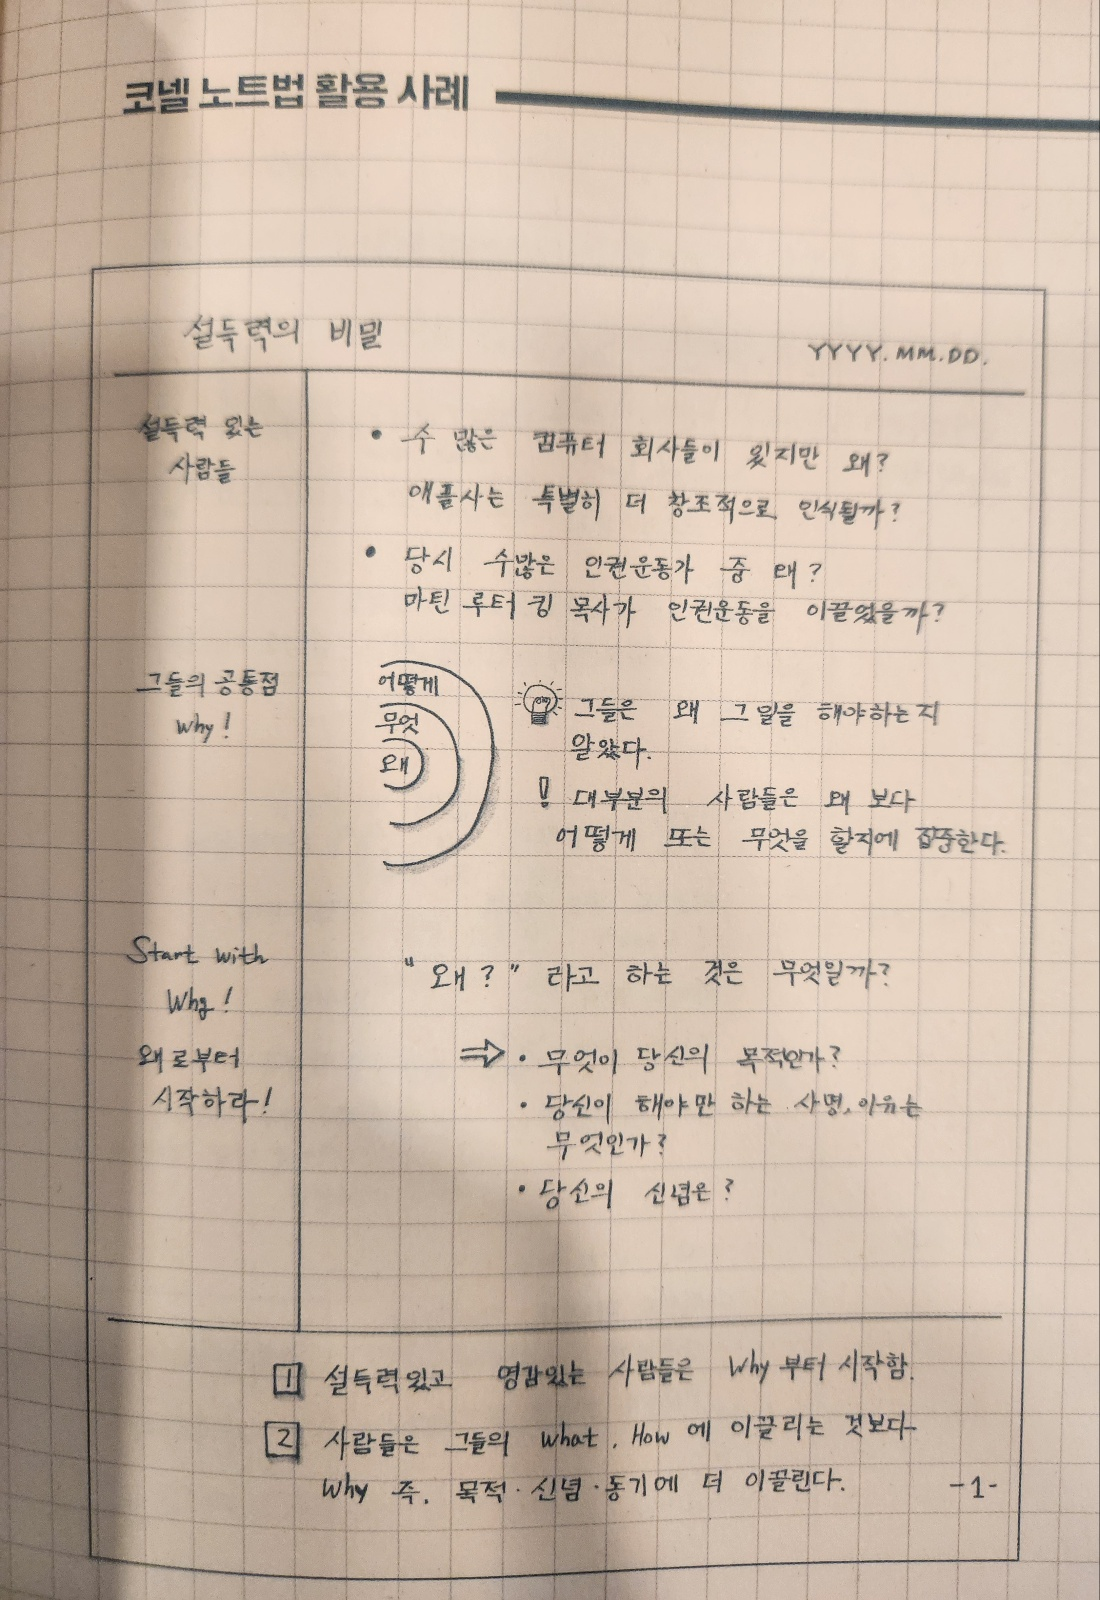 코넬 노트법 활용 사례
설득력의 비밀
YYYY.MM.DD.
설득력 있는
사람들
• 수 많은 컴퓨터 회사들이 있지만 왜?
애플사는 특별히 더 창조적으로 인식될까?
• 당시 수많은 인권운동가 중 왜?
마틴 루터 킹 목사가 인권운동을 이끌었을까?
그들의 공통점
Why!
어떻게
무엇
왜
그들은 왜 그 일을 해야하는지
알았다.
! 대부분의 사람들은 왜 보다
어떻게 또는 무엇을 할지에 집중한다.
Start with
Why!
왜로부터
시작하라!
"왜?" 라고 하는 것은 무엇일까?
⇒ • 무엇이 당신의 목적인가?
• 당신이 해야만 하는 사명, 이유는
무엇인가?
• 당신의 신념은?
1 설득력있고 영감있는 사람들은 Why부터 시작함.
2 사람들은 그들의 what, How에 이끌리는 것보다
Why 즉, 목적·신념·동기에 더 이끌린다.
-1-